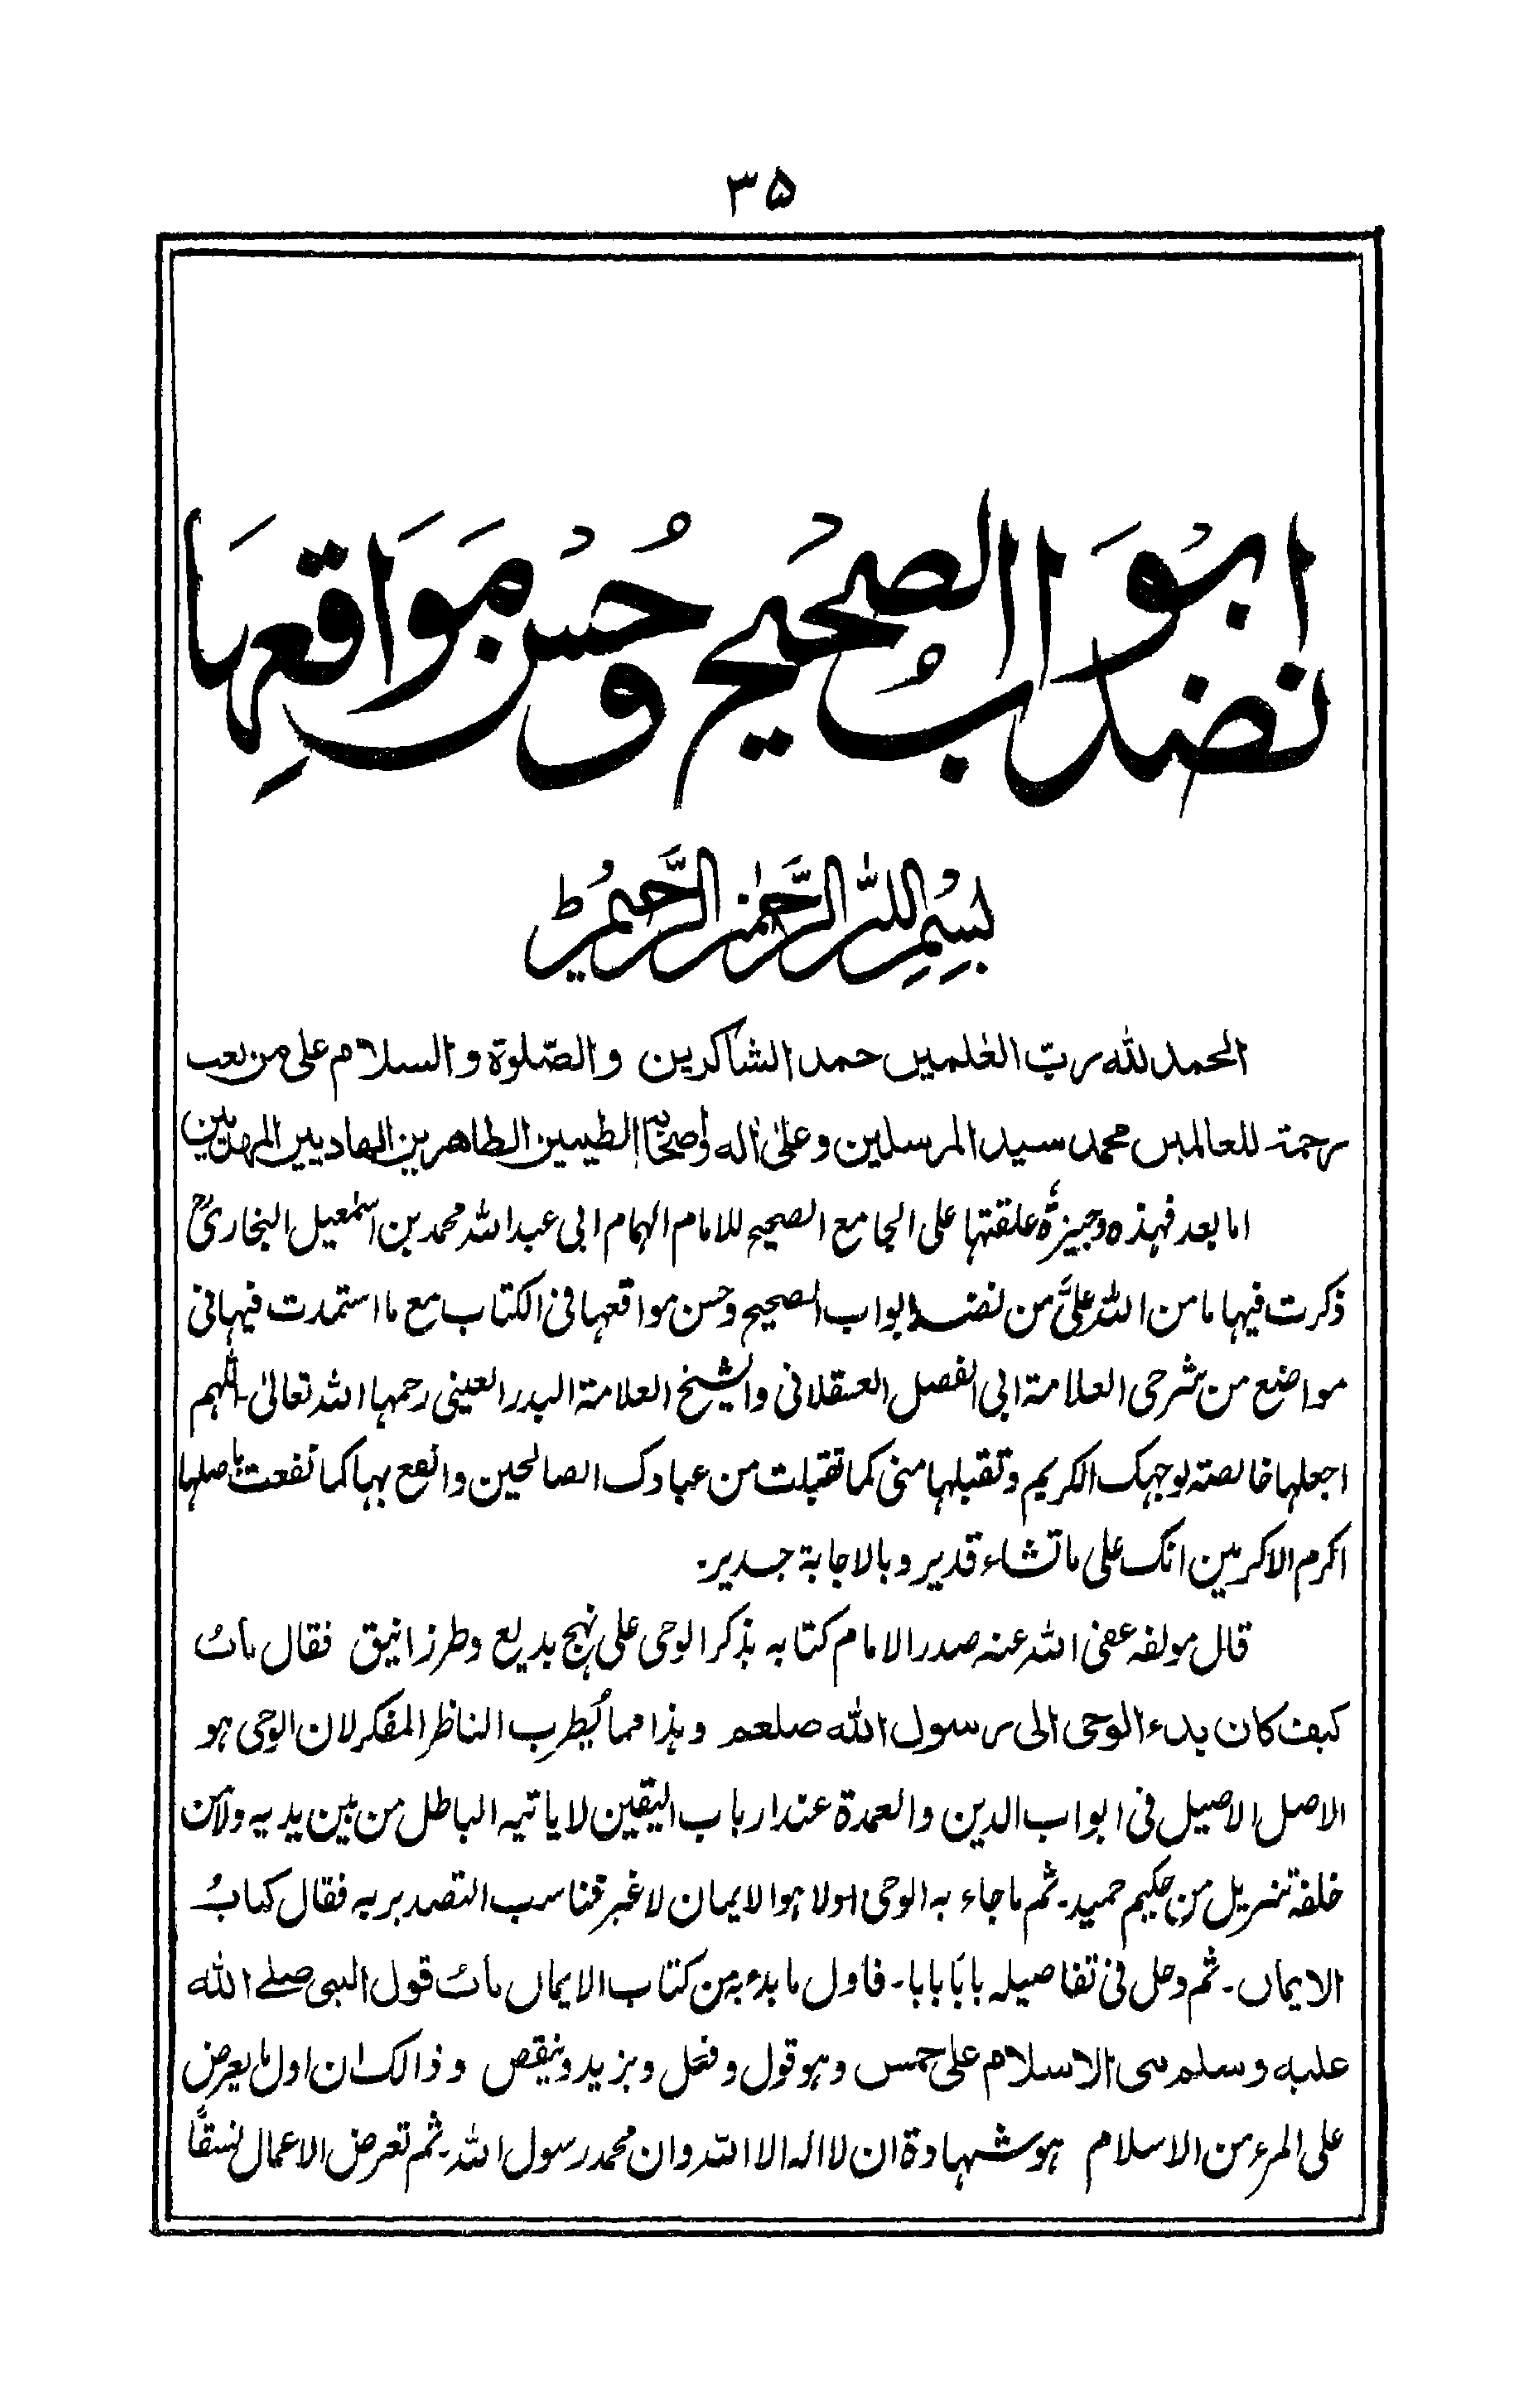 ۳۵
نضد ابواب الصحیح وحُسن مَوَاقعِہَا
بِسْمِ اللہِ الرَّحْمٰنِ الرَّحِیْمِ ط
الحمد للہ رب العٰلمین حمد الشاکرین والصّلوۃ والسلام علی من بعث
رحمۃ للعالمین محمد سید المرسلین وعلیٰ اٰلہ واصحابہ الطیبین الطاھرین الھادیین المھدیین
اما بعد فہذہ وجیزۃٌ علقتہا علی الجامع الصحیح للامام الہمام ابی عبد اللہ محمد بن اسمٰعیل البخاریؒ
ذکرت فیہا ما من اللہ علیَّ من نضد ابواب الصحیح وحسن مواقعہا فی الکتاب مع ما استمدت فیہا فی
مواضع من شرحی العلامۃ ابی الفضل العسقلانی والشیخ العلامۃ البدر العینی رحمہما اللہ تعالیٰ۔ اللّٰہم
اجعلہا خالصۃ لوجہک الکریم وتقبلہا منی کما تقبلت من عبادک الصالحین وانفع بہا کما نفعت باصلہا
اکرم الاکرمین انک علی ما تشاء قدیر وبالاجابۃ جدیر۔
قال مولفہ عفی اللہ عنہ صدر الامام کتابہ بذکر الوحی علی نہج بدیع وطرز انیق فقال باب
کیف کان بدء الوحی الی رسول اللہ صلعم وہذا مما یُطرب الناظر المفکر لان الوحی ہو
الاصل الاصیل فی ابواب الدین والعمدۃ عند ارباب الیقین لا یاتیہ الباطل من بین یدیہ ولا من
خلفہ تنزیل من حکیم حمید۔ ثم ما جاء بہ الوحی اولا ہو الایمان لا غیر فناسب التصدیر بہ فقال کتابُ
الایمان۔ ثم دخل فی تفاصیلہ بابًا بابا۔ فاول ما بدء بہ من کتاب الایمان باب قول النبی صلے اللہ
علیہ وسلم بنی الاسلام علی خمس وہو قول وفعل ویزید وینقص وذالک ان اول ما یعرض
علی المرء من الاسلام ہو شہادۃ ان لا الہ الا اللہ وان محمد رسول اللہ۔ ثم تعرض الاعمال نسقًا